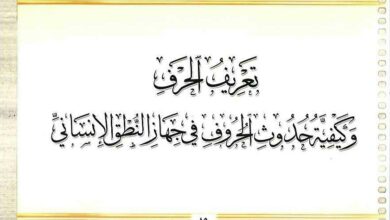 تَعْرِيفُ الْحَرْفِ
وَكَيْفِيَّةُ حُدُوثِ الْحُرُوفِ فِي جِهَازِ النُّطْقِ الْإِنْسَانِيِّ